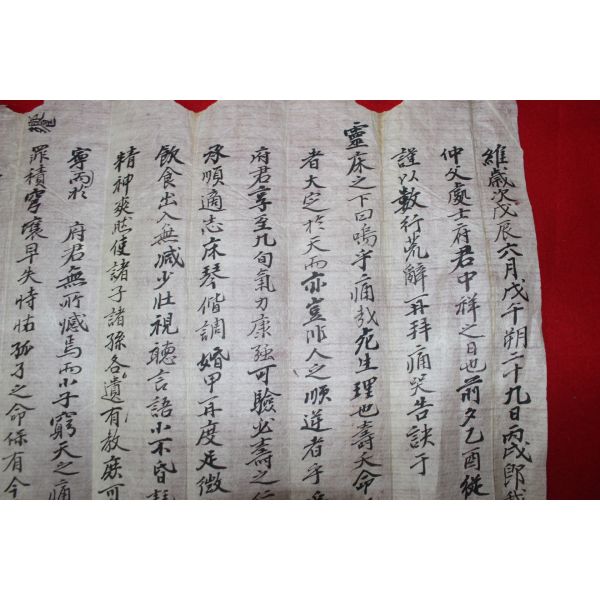 維歲次戊辰六月戊午朔二十九日丙戌卽我
仲父處士府君中祥之日也前夕乙酉從
謹以數行荒辭再拜痛哭告訣于
靈床之下曰嗚乎痛哉死生理也壽夭命
者大定於天而亦豈非人之順逆者乎
府君享至九旬氣力康强可驗必壽之仁
承順適志床琴偕調婚甲再度足徵
飮食出入無減少壯視聽言語小不昏
精神爽然使諸子諸孫各遺有敎庶可
寧而於 府君無所憾焉而小子窮天之痛
罪積穹壤早失恃怙孤孑之命保有今